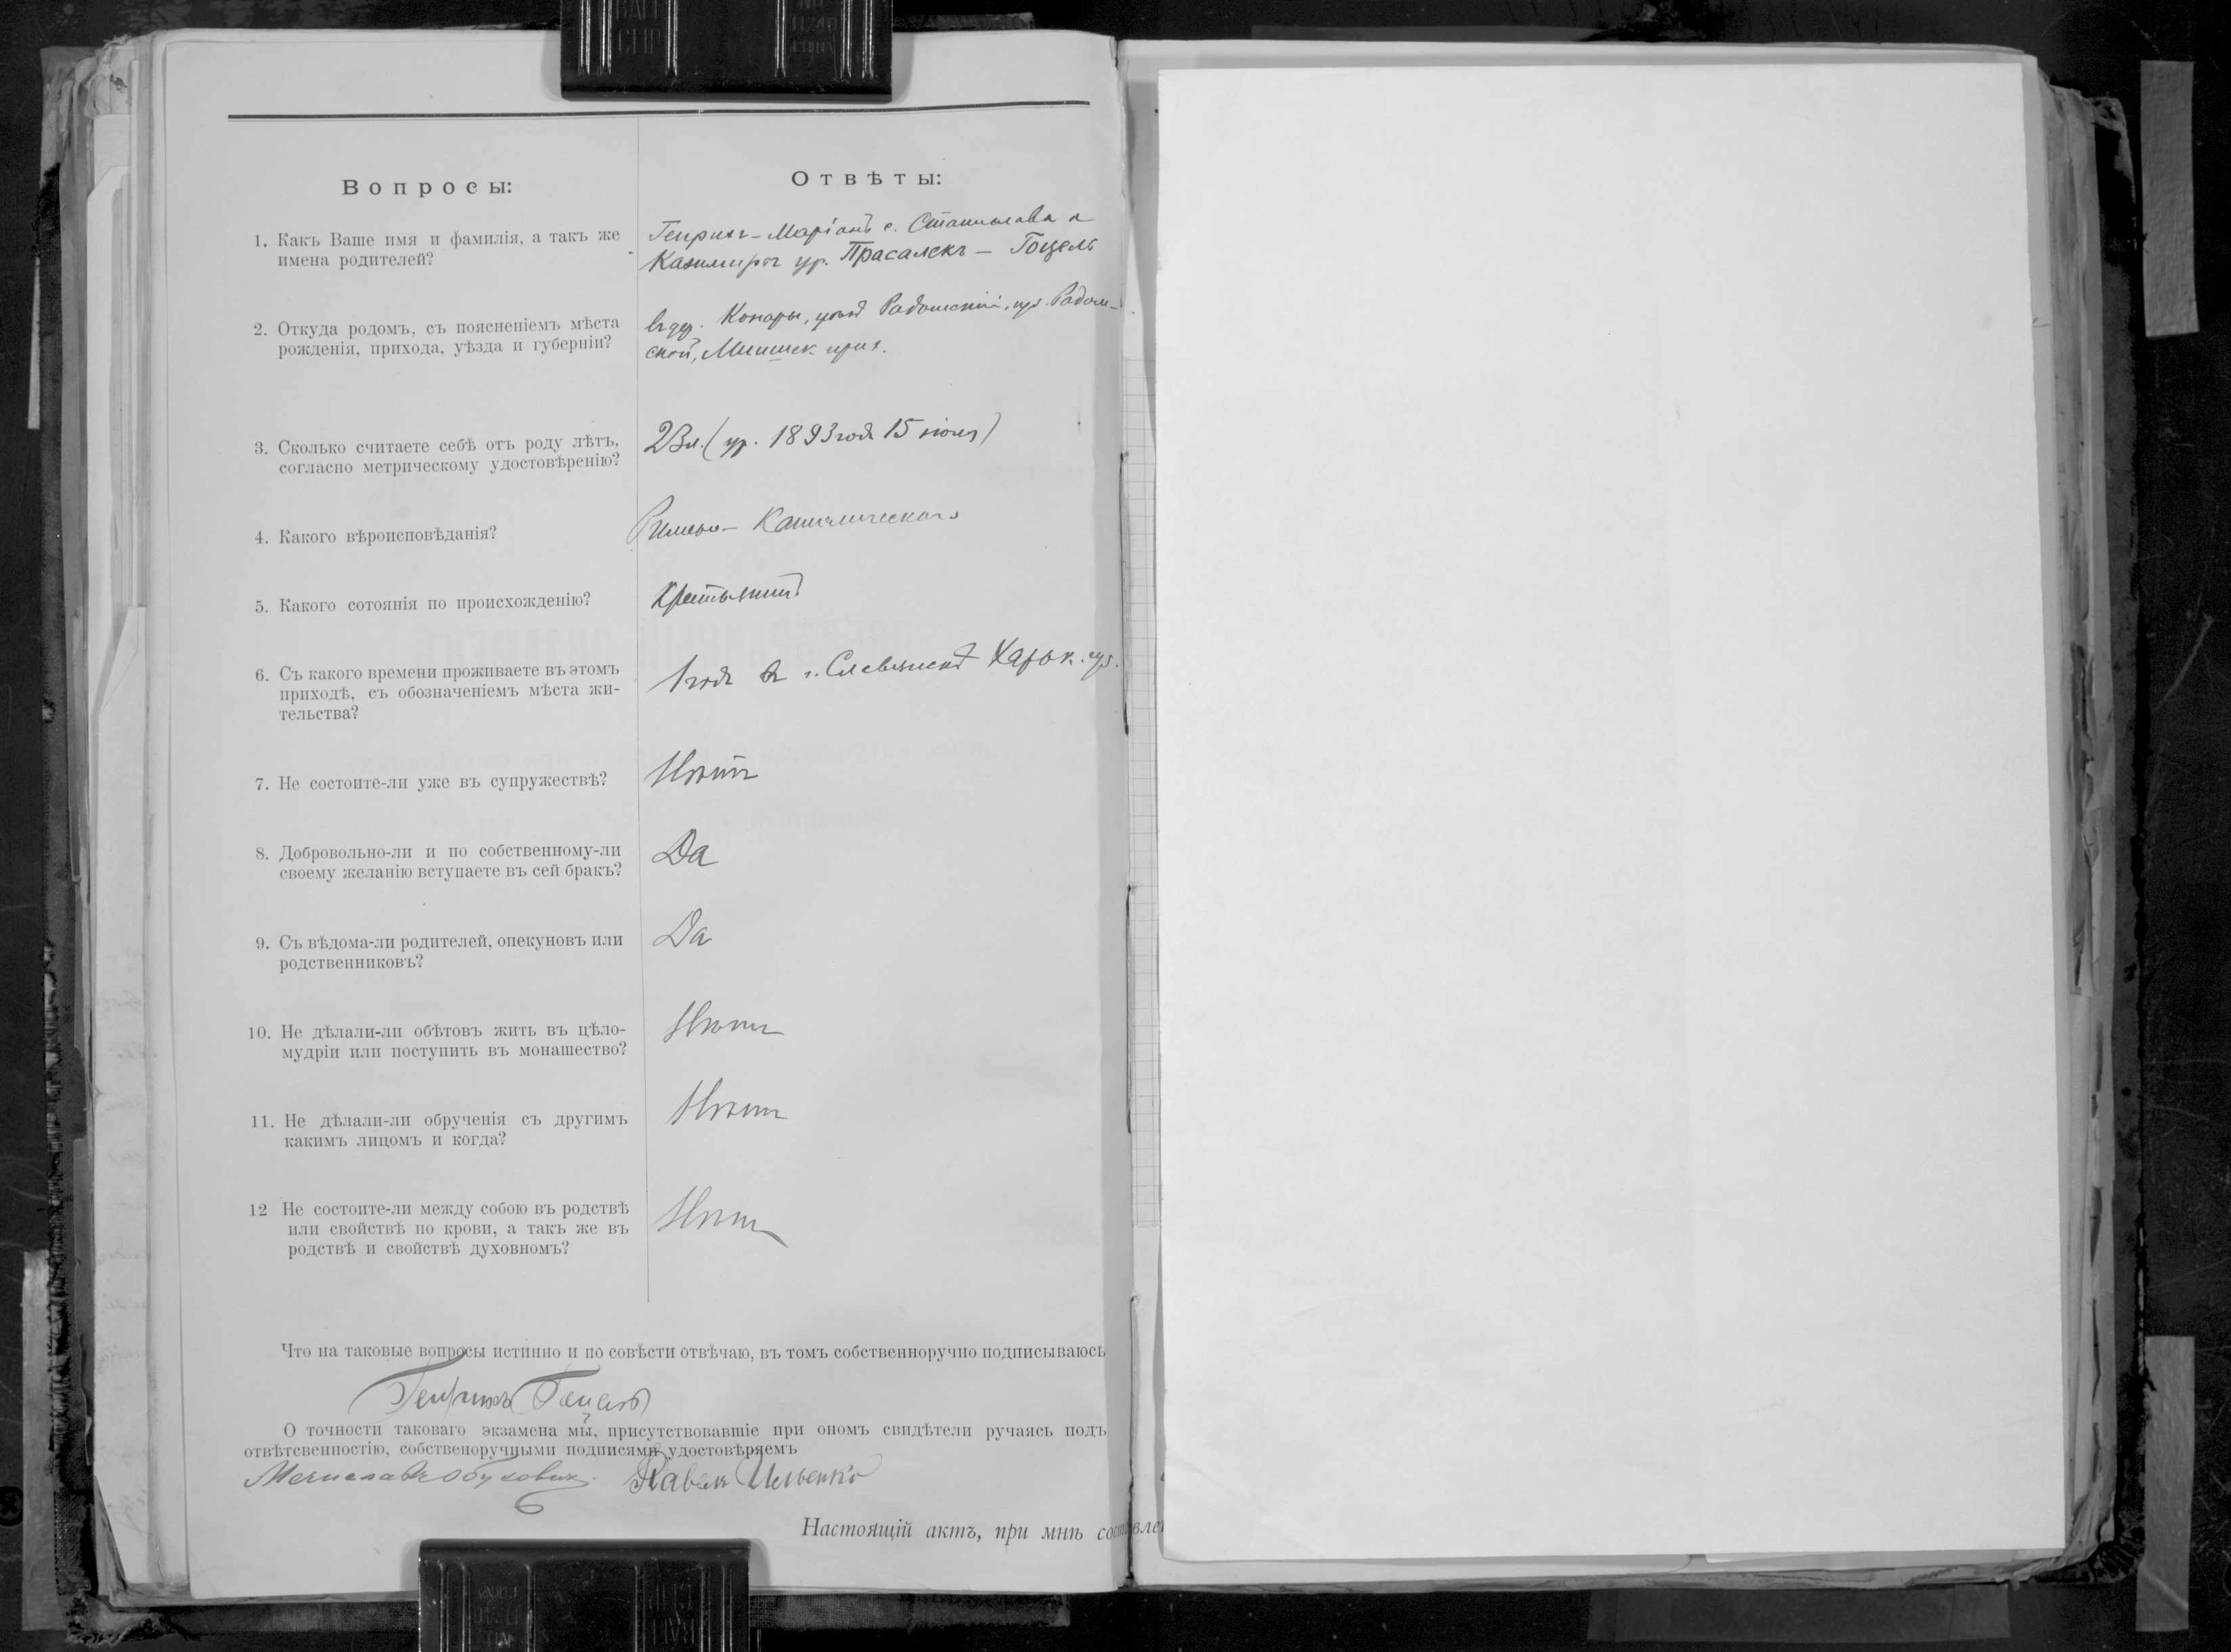 Вопросы:
Отвѣты:
1. Какъ Ваше имя и фамилія, а такъ же
имена родителей?
Генрихъ-Маріанъ с. Станислава и
Казимиры ур. Прасалекъ — Гоцель
2. Откуда родомъ, съ поясненіемъ мѣста
рожденія, прихода, уѣзда и губерніи?
въ дер. Конары, уѣзд Радомскій, губ. Радом-
ской, прих.
3. Сколько считаете себѣ отъ роду лѣтъ,
согласно метрическому удостовѣренію?
23 л. (ур. 1893 года 15 іюля)
4. Какого вѣроисповѣданія?
Римско-Католическаго
5. Какого сотоянія по происхожденію?
Крестьянинъ
6. Съ какого времени проживаете въ этомъ
приходѣ, съ обозначеніемъ мѣста жи-
тельства?
1 годъ въ г. Славянскѣ Харьк. губ.
7. Не состоите-ли уже въ супружествѣ?
Нѣтъ
8. Добровольно-ли и по собственному-ли
своему желанію вступаете въ сей бракъ?
Да
9. Съ вѣдома-ли родителей, опекуновъ или
родственниковъ?
Да
10. Не дѣлали-ли обѣтовъ жить въ цѣло-
мудріи или поступить въ монашество?
Нѣтъ
11. Не дѣлали-ли обрученія съ другимъ
какимъ лицомъ и когда?
Нѣтъ
12 Не состоите-ли между собою въ родствѣ
или свойствѣ по крови, а такъ же въ
родствѣ и свойствѣ духовномъ?
Нѣтъ
Что на таковые вопросы истинно и по совѣсти отвѣчаю, въ томъ собственноручно подписываюсь
Генрихъ Гоцель
О точности таковаго экзамена мы, присутствовавшіе при ономъ свидѣтели ручаясь подъ
отвѣтсвенностію, собственоручными подписями удостовѣряемъ
Мечиславъ Обухович. Павелъ Ильенко
Настоящій актъ, при мнѣ составле